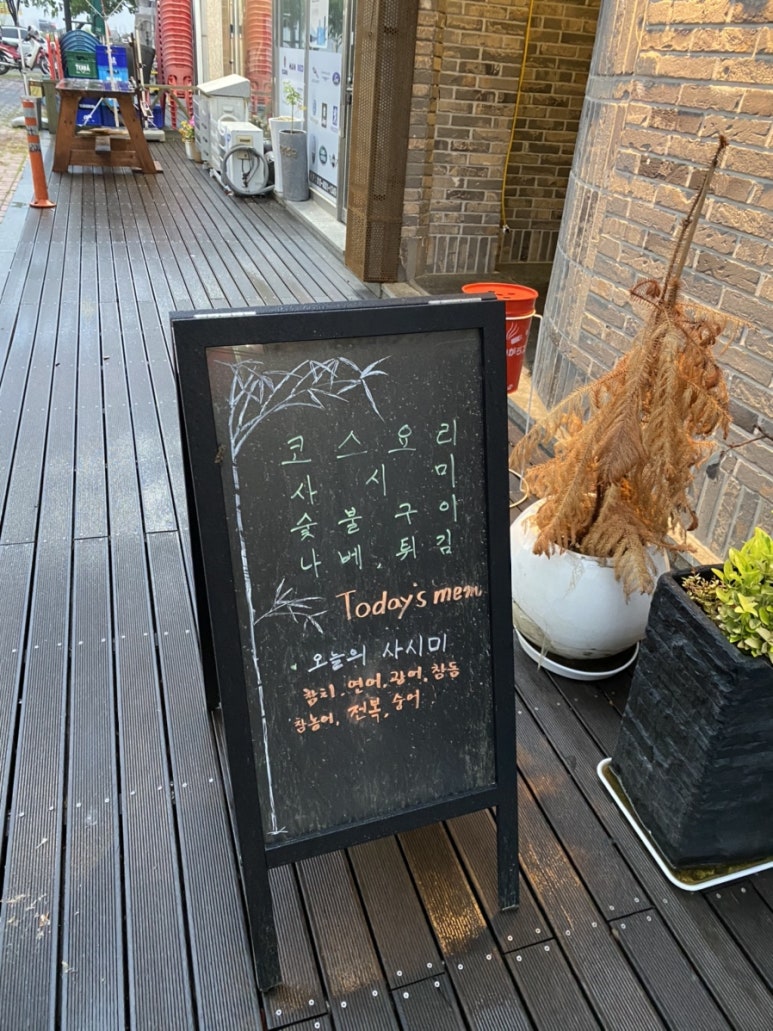 코스요리
사시미
숯불구이
나베.튀김
Today's menu
. 오늘의 사시미
참치.연어.광어.참돔
참농어, 전복, 숭어